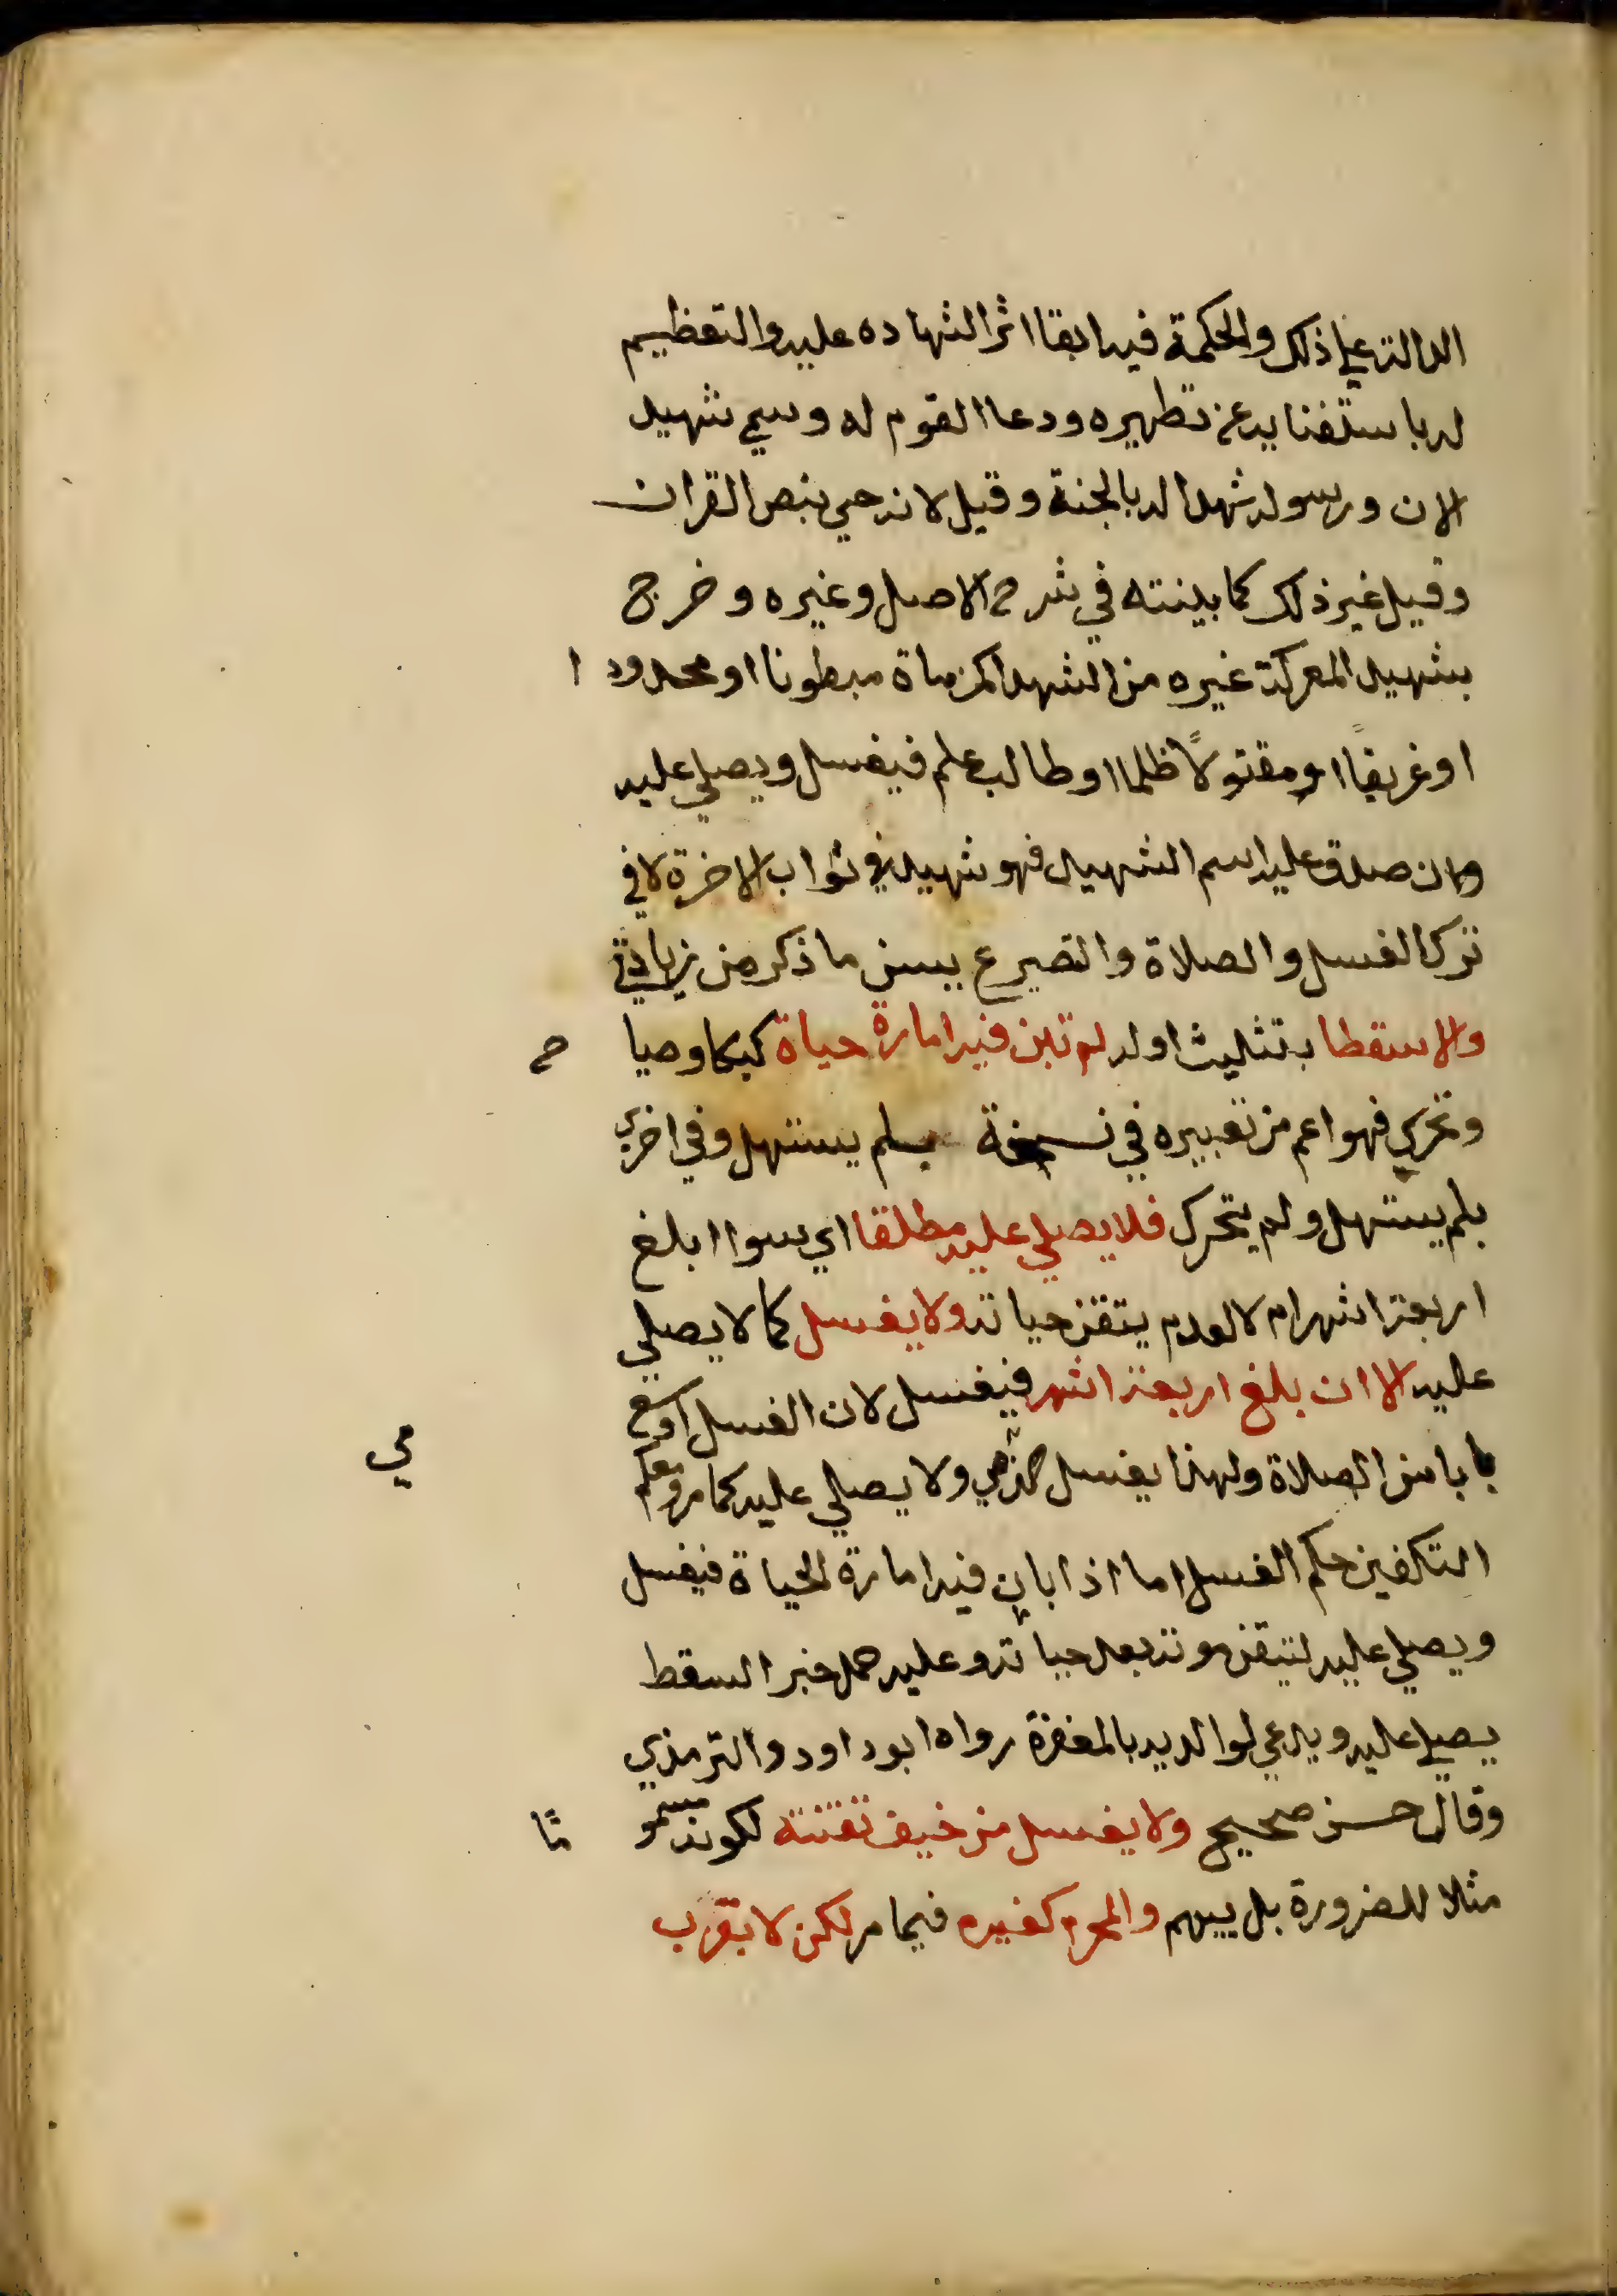 الدالة علي ذلك والحكمة فيه ابقا اثر الشهاده عليه والتعظيم
له باستغنايه عن تطهيره ودعا القوم له وسمي شهيد
الان ورسوله شهدا له بالجنة وقيل لانه حي بنص القران
وقيل غير ذلك كما بينته في شرح الاصل وغيره وخرج
بشهيد المعركة غيره من الشهدا كمن ماة مبطونا او محدودا
او غريقاً او مقتولاً ظلما او طالب علم فيغسل ويصلي عليه
وان صدق عليه اسم الشهيد فهو شهيد في ثواب الاخرة لا في
ترك الغسل والصلاة والتصيرع بسن ما ذكر من زيادتي
والا سقطا بتثليث اوله لم تبن فيه امارة حياة كبكا وصياح
وتحرك فهو اعم من تعبيره في نسخة بلم يستهل وفي اخري
بلم يستهل ولم يتحرك فلا يصلي عليه مطلقا اي سوا ابلغ
اربعة اشهر ام لا لعدم يتقن حياته ولا يغسل كما لا يصلي
عليه الا ان بلغ اربعة اشهر فيغسل لان الغسل اوسع
بابا من الصلاة ولهذا يغسل الذمي ولا يصلي عليه كما مر وحكم
التكفين حكم الغسل اما اذا بان فيه امارة الحياة فيغسل
ويصلي عليه لتيقن موته بعد حياته وعليه حمل خبر السقط
يصلي عليه ويدعي لوالديه بالمغفرة رواه ابو داود والترمذي
وقال حسن صحيح ولا يغسل من خيف تفتته لكونه مسموما
مثلا للضرورة بل ييمم والمحرم كغيره فيما مر لكن لا يقرب
مي